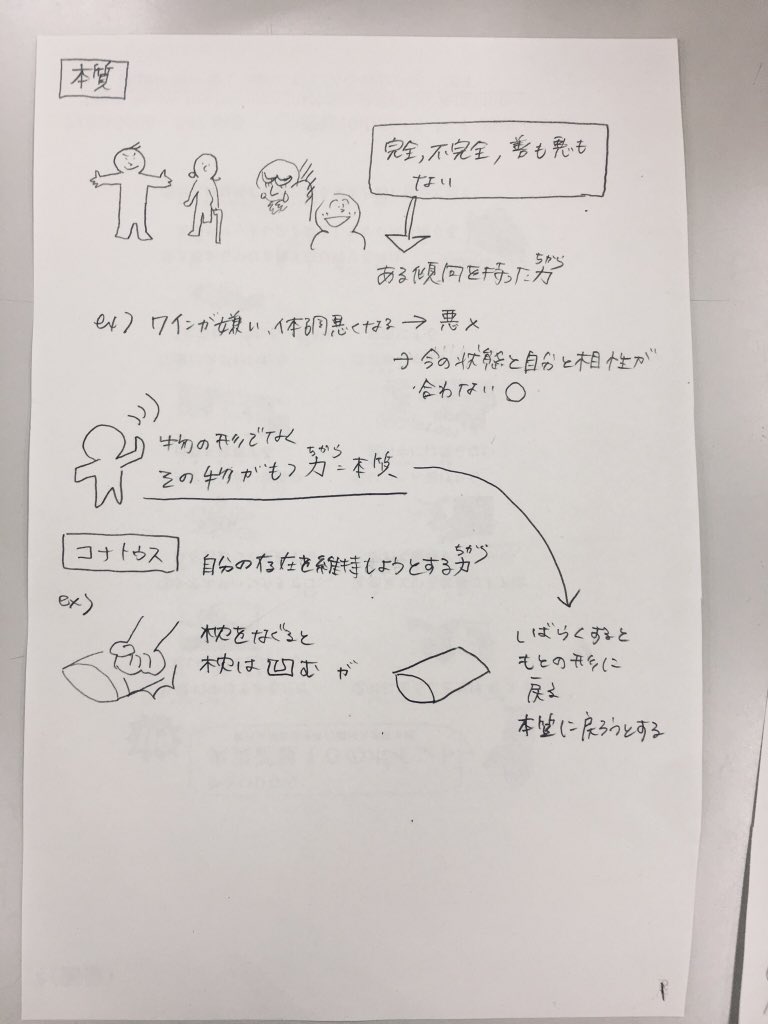 本質
完全,不完全,善も悪も
ない
ちから
ある傾向を持った力
ex) ワインが嫌い、体調悪くなる → 悪 ×
→ 今の状態と自分と相性が
合わない ○
物の形でなく
ちから
その物がもつ力=本質
コナトゥス
ちから
自分の存在を維持しようとする力
ex)
枕をなぐると
枕は凹む が
しばらくすると
もとの形に
戻る
本質に戻ろうとする
1